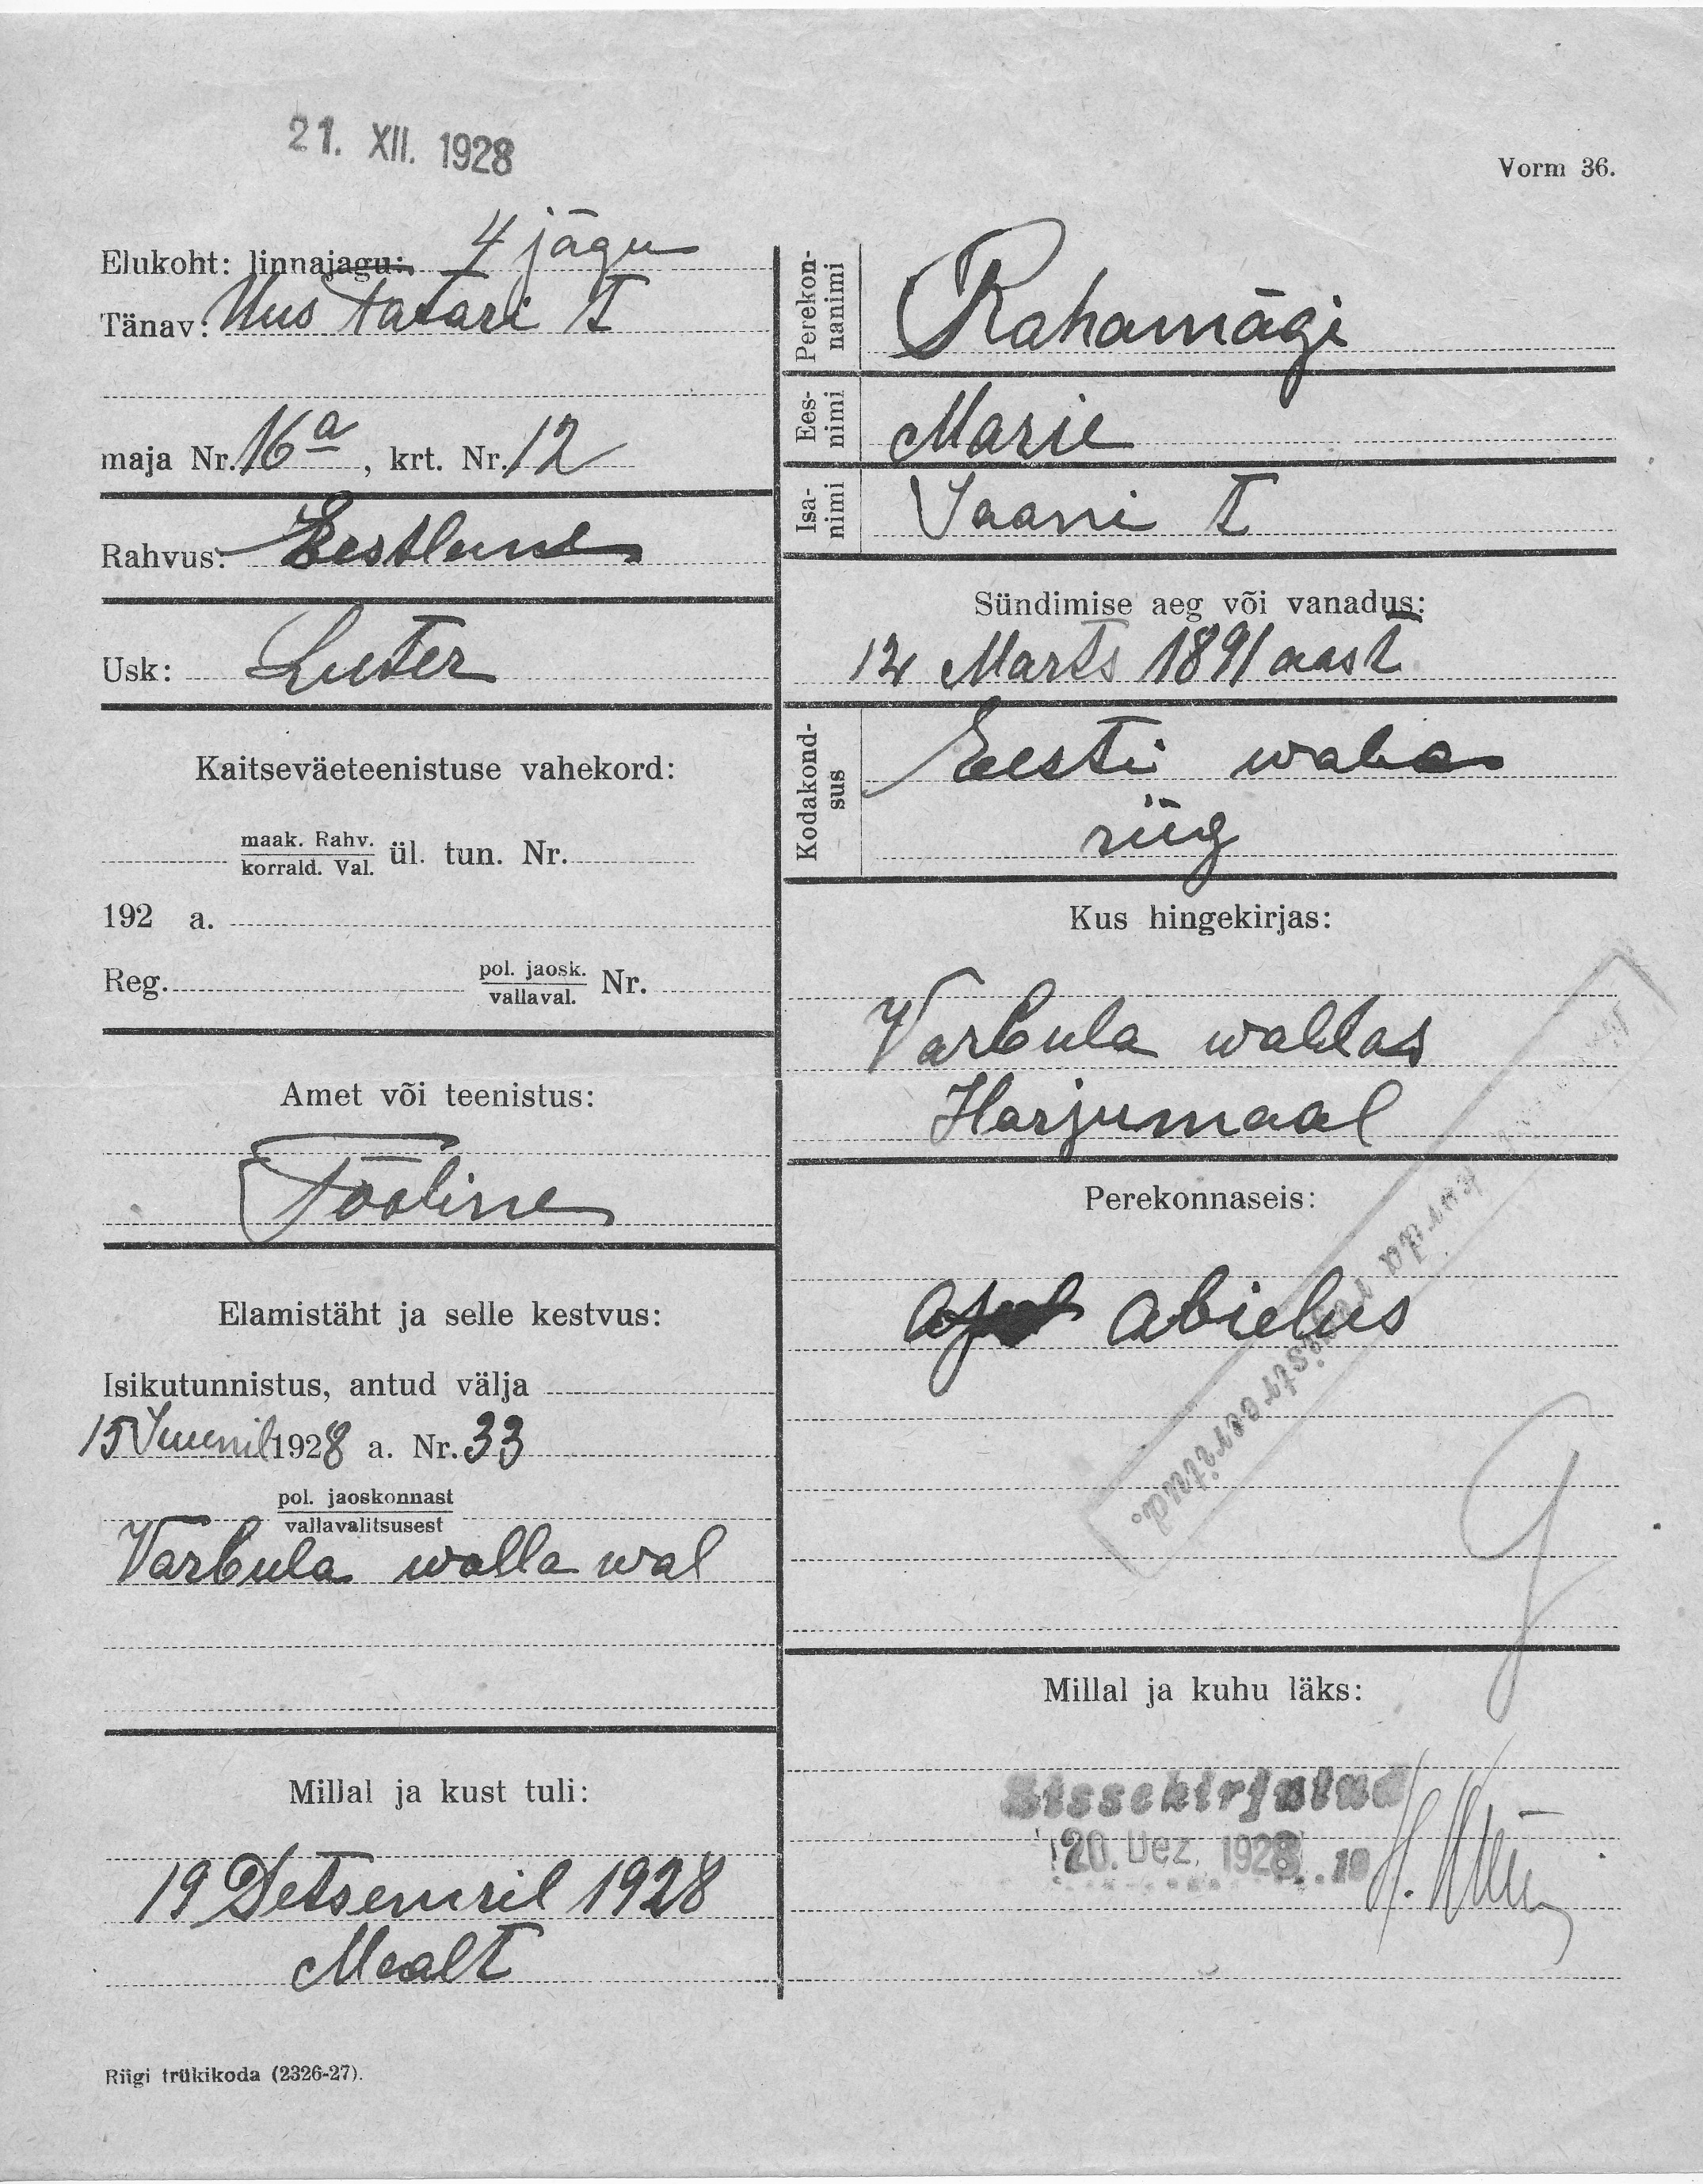 21. XII. 1928
Vorm 36.
Elukoht: linnajagu: 4 jägu
Tänav: Uus tatari t
maja Nr. 16a, krt. Nr. 12
Rahvus: Eestlane
Usk: Luter
Kaitseväeteenistuse vahekord:
maak. Rahv.
korrald. Val. ül. tun. Nr.
192 a.
Reg. pol. jaosk.
vallaval. Nr.
Amet või teenistus:
Tööline
Elamistäht ja selle kestvus:
Isikutunnistus, antud välja
15 Juunil 1928 a. Nr. 33
pol. jaoskonnast
vallavalitsusest
Varbula walla wal
Millal ja kust tuli:
19 Detsemril 1928
Mealt
Riigi trükikoda (2326-27).
Perekon-
nanimi
Rahamägi
Ees-
nimi
Marie
Isa-
nimi
Jaani t
Sündimise aeg või vanadus:
12 Marts 1891 aast
Kodakond-
sus
Eesti waba
riig
Kus hingekirjas:
Varbula wallas
Harjumaal
Perekonnaseis:
abielus
korda registreeritud.
Millal ja kuhu läks:
Sissekirjutud
20. Dez. 1928 .19